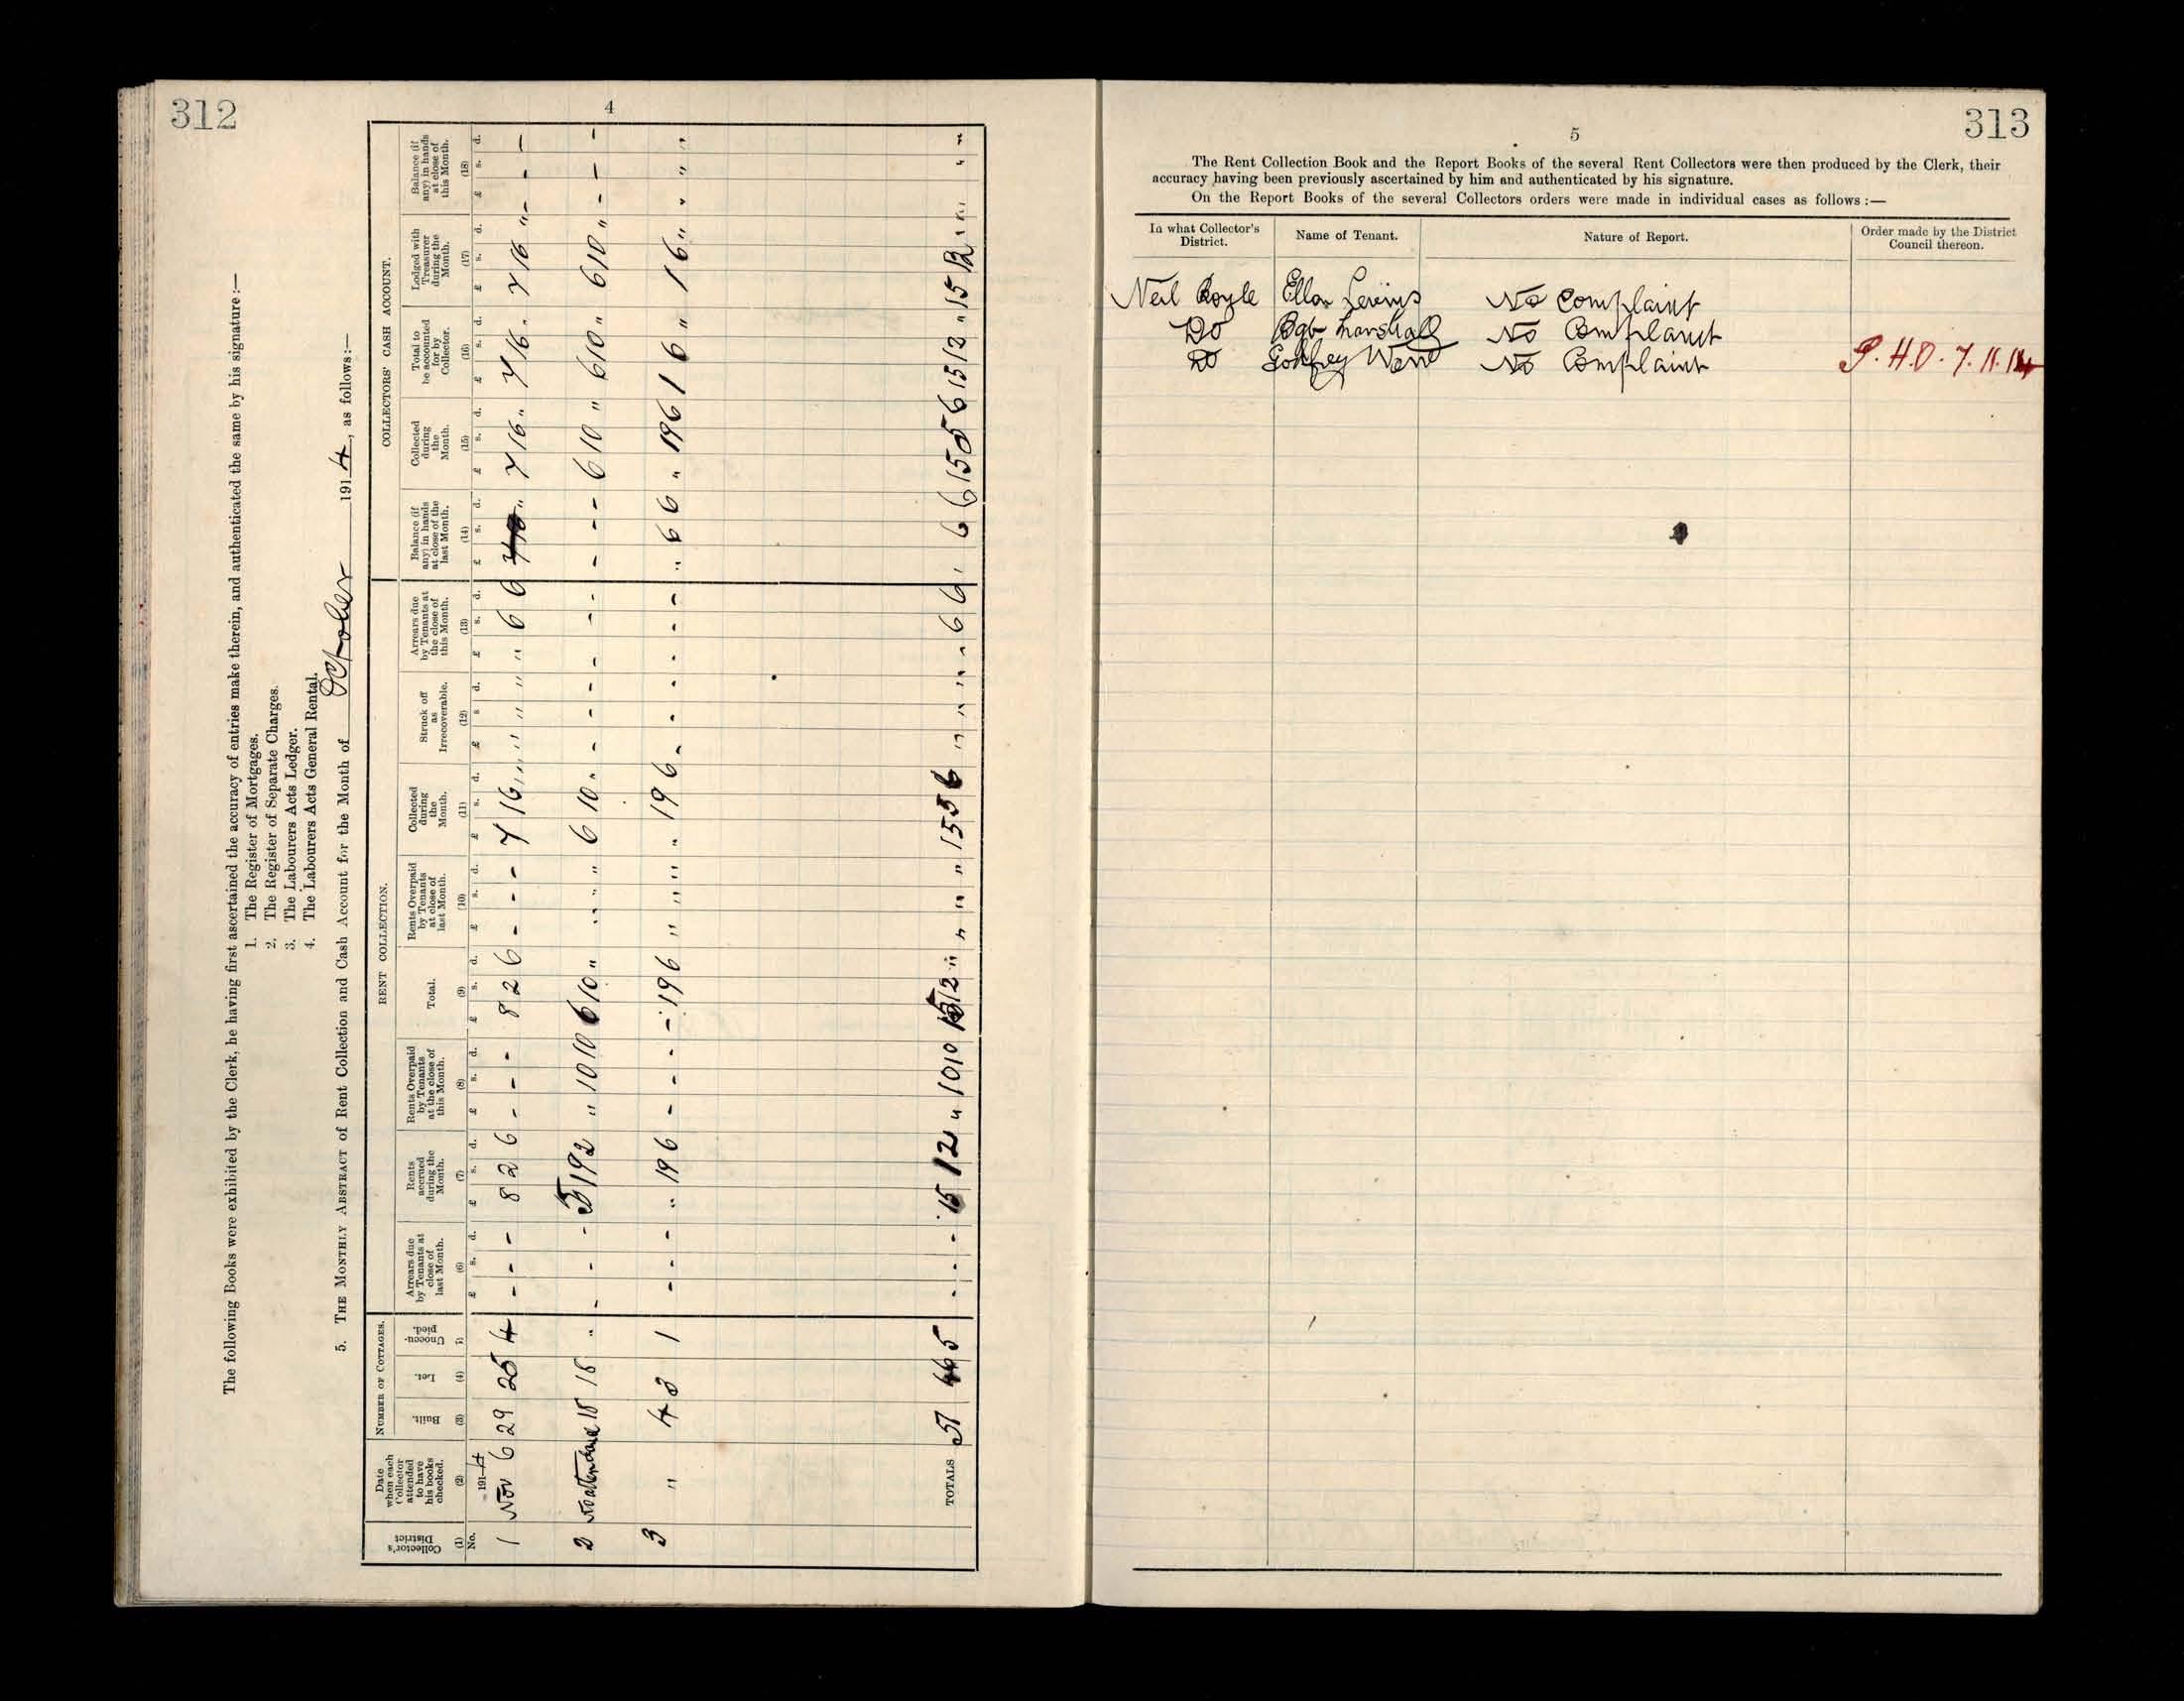 312
4
The following Books were exhibited by the Clerk, he having first ascertained the accuracy of entries make therein, and authenticated the same by his signature :—
1. The Register of Mortgages.
2. The Register of Separate Charges.
3. The Labourers Acts Ledger.
4. The Labourers Acts General Rental.
5. THE MONTHLY ABSTRACT of Rent Collection and Cash Account for the Month of October 1914, as follows:—
NUMBER OF COTTAGES. RENT COLLECTION. COLLECTORS' CASH ACCOUNT.
Collector's District (1) No.
Date when each Collector attended to have his books checked. (2) 1914
Built. (3)
Let. (4)
Unoccupied. (5)
Arrears due by Tenants at close of last Month. (6) £ s. d.
Rents accrued during the Month. (7) £ s. d.
Rents Overpaid by Tenants at the close of this Month. (8) £ s. d.
Total. (9) £ s. d.
Rents Overpaid by Tenants at close of last Month. (10) £ s. d.
Collected during the Month. (11) £ s. d.
Struck off as Irrecoverable. (12) £ s. d.
Arrears due by Tenants at the close of this Month. (13) £ s. d.
Balance (if any) in hands at close of the last Month. (14) £ s. d.
Collected during the Month. (15) £ s. d.
Total to be accounted for by Collector. (16) £ s. d.
Lodged with Treasurer during the Month. (17) £ s. d.
Balance (if any) in hands at close of this Month. (18) £ s. d.
1 Nov 6 29 25 4 - - - 8 2 6 - - - 8 2 6 - - - 7 16 " " " " " 6 6 7 16 " 7 16 " 7 16 " - - -
2 No attendance 18 18 " - - - 5 19 2 " 10 10 6 10 " " " " 6 10 " - - - - - - - - - 6 10 " 6 10 " 6 10 " - - -
3 " 4 3 1 - - - " 19 6 - - - - 19 6 " " " " 19 6 - - - - - - " 6 6 " 19 6 1 6 " 1 6 " " " "
TOTALS 51 46 5 - - - 15 1 2 " 10 10 15 12 " " " " 15 5 6 " " " - 6 6 " 6 6 15 5 6 15 12 " 15 12 " " " "
313
5
The Rent Collection Book and the Report Books of the several Rent Collectors were then produced by the Clerk, their
accuracy having been previously ascertained by him and authenticated by his signature.
On the Report Books of the several Collectors orders were made in individual cases as follows :—
In what Collector's District. Name of Tenant. Nature of Report. Order made by the District Council thereon.
Neil Boyle Ellen No Complaint
Do Marshall No Complaint
Do Godfrey No Complaint
P.H.O. 7.11.14